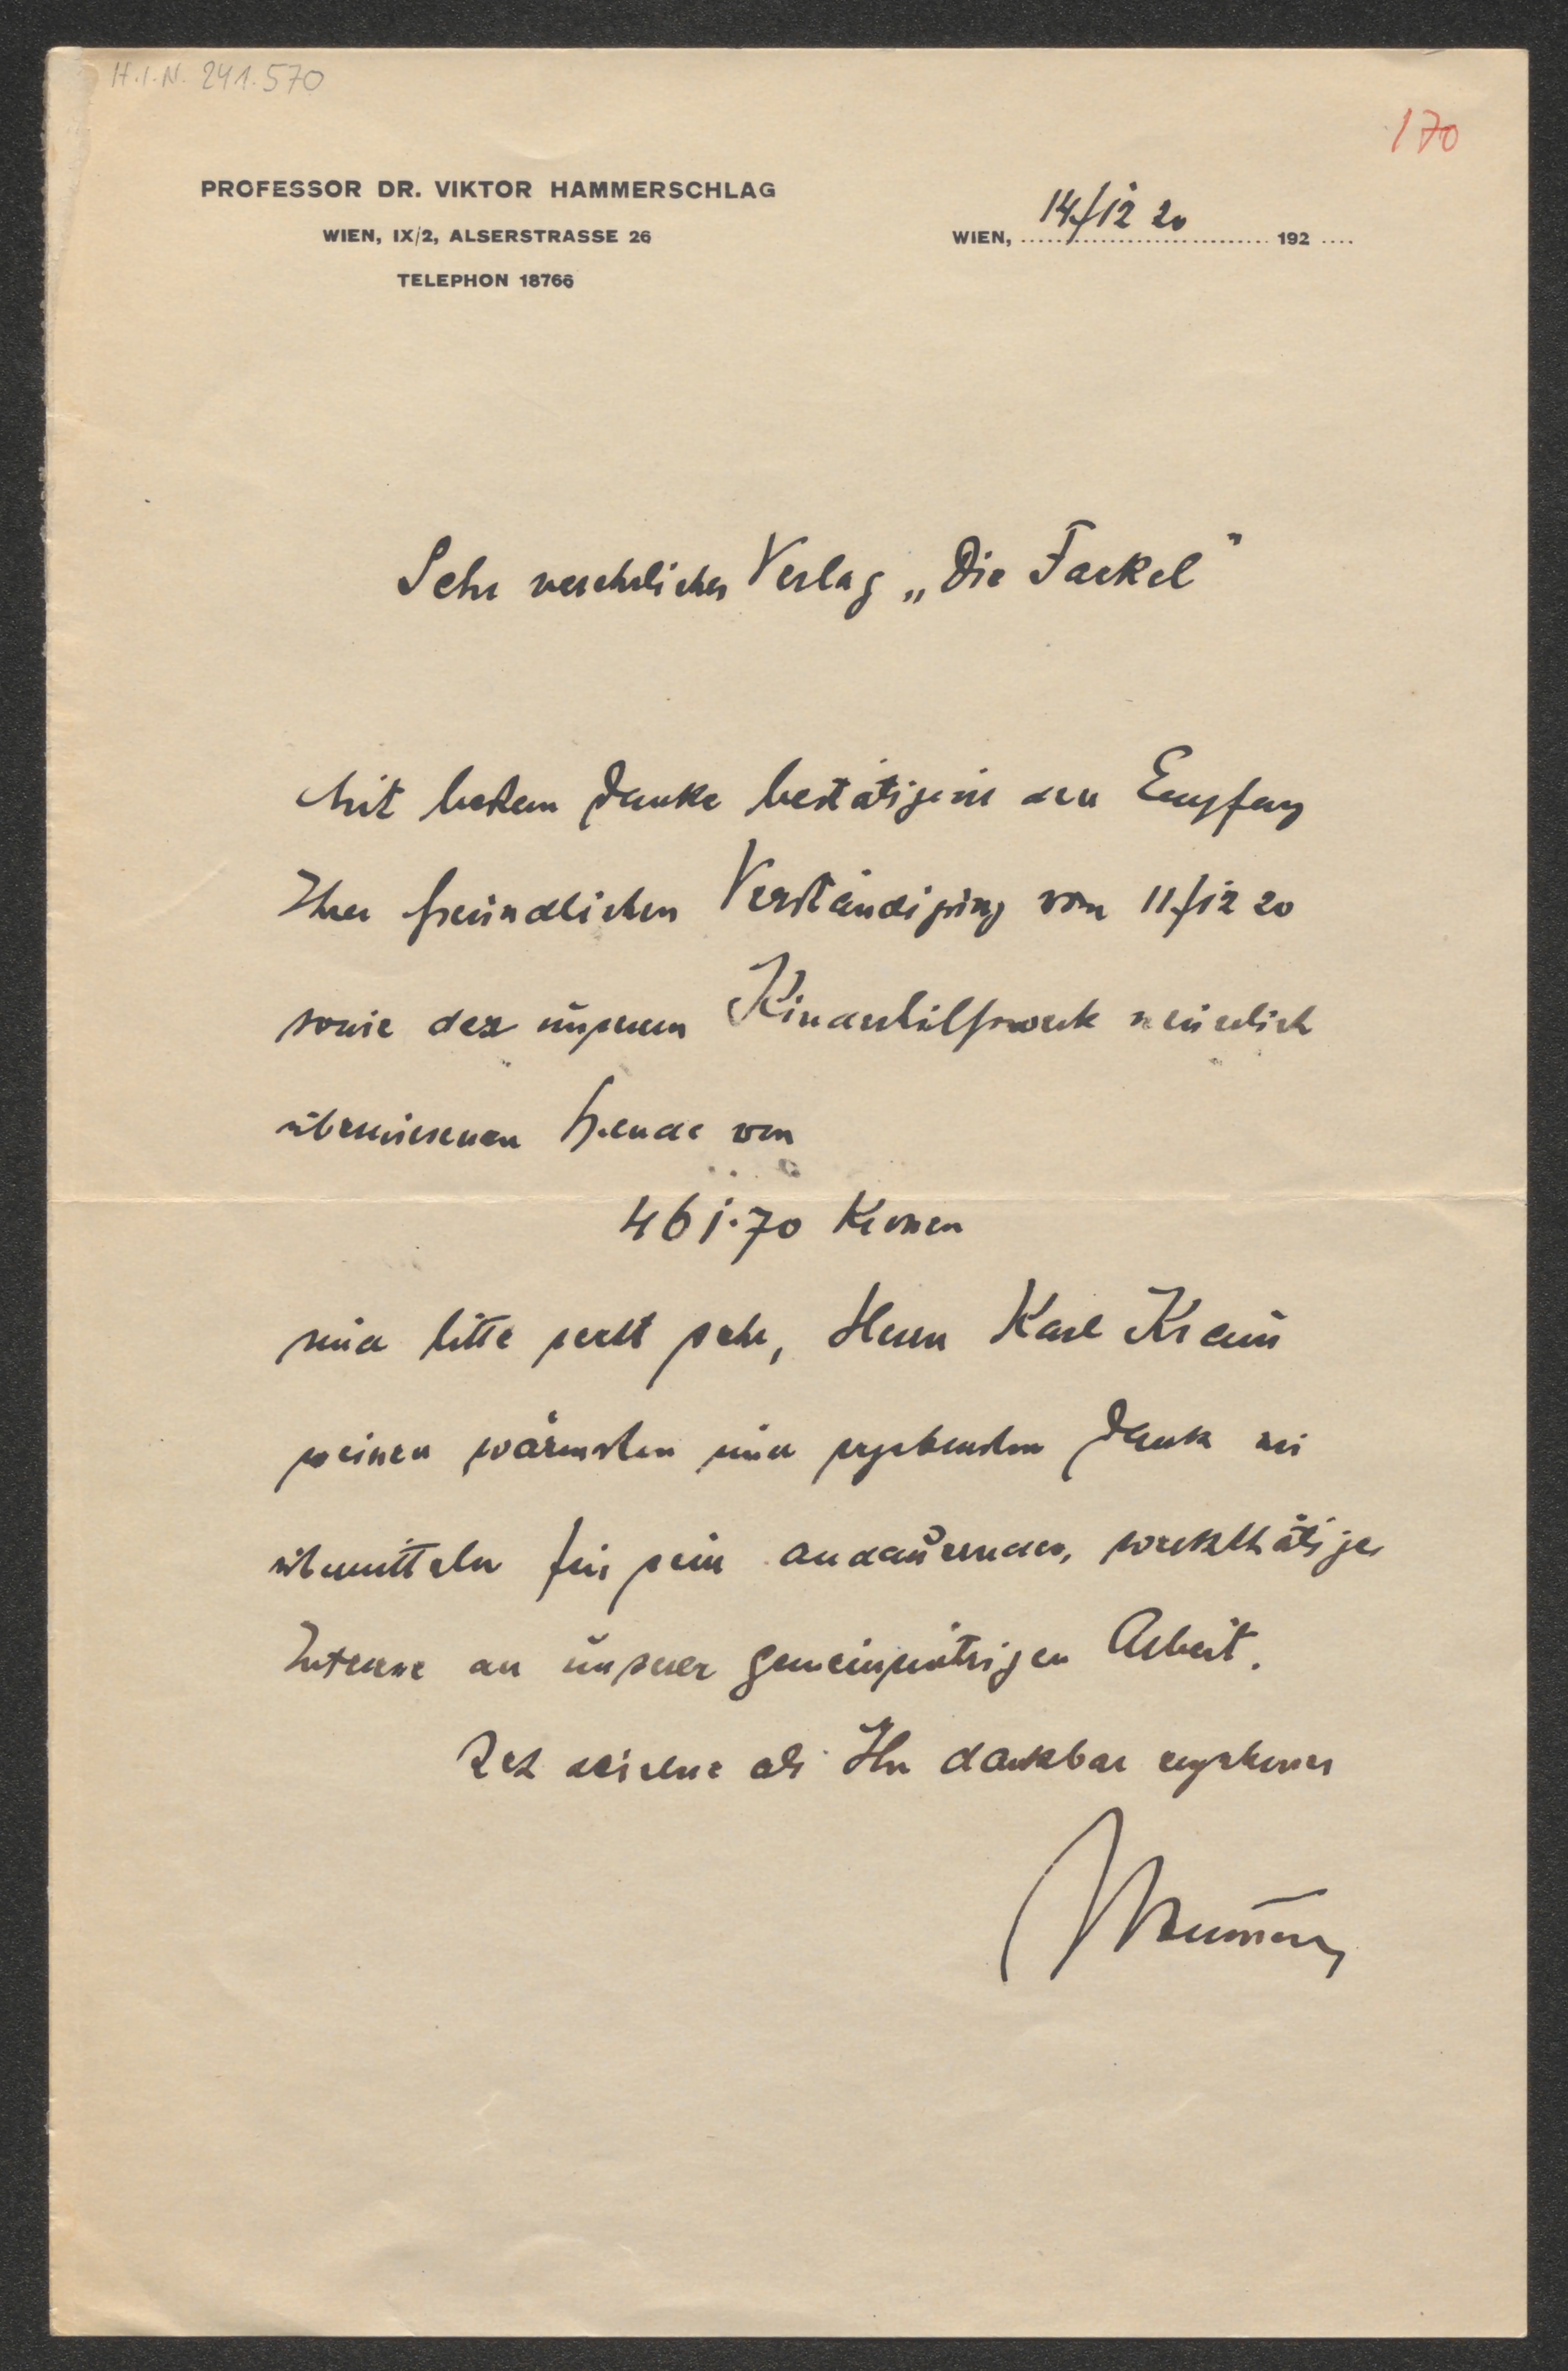 H.I.N. 241.570
170
PROFESSOR DR. VIKTOR HAMMERSCHLAG
WIEN, IX/2, ALSERSTRASSE 26
TELEPHON 18766
WIEN, 14/12 20 192
Sehr verehrlicher Verlag „Die Fackel"
Mit bestem Danke bestätige den Empfang
Ihrer freundlichen Verständigung vom 11/12 20
sowie der unserem Kinderhilfswerk neuerlich
überwiesenen Spende von
461·70 Kronen
und bitte recht sehr, Herrn Karl Kraus
meinen wärmsten und ergebensten Dank zu
übermitteln für sein andauerndes, werkthätiges
Interesse an unserer gemeinnützigen Arbeit.
Ich zeichne als Ihr dankbar ergebener